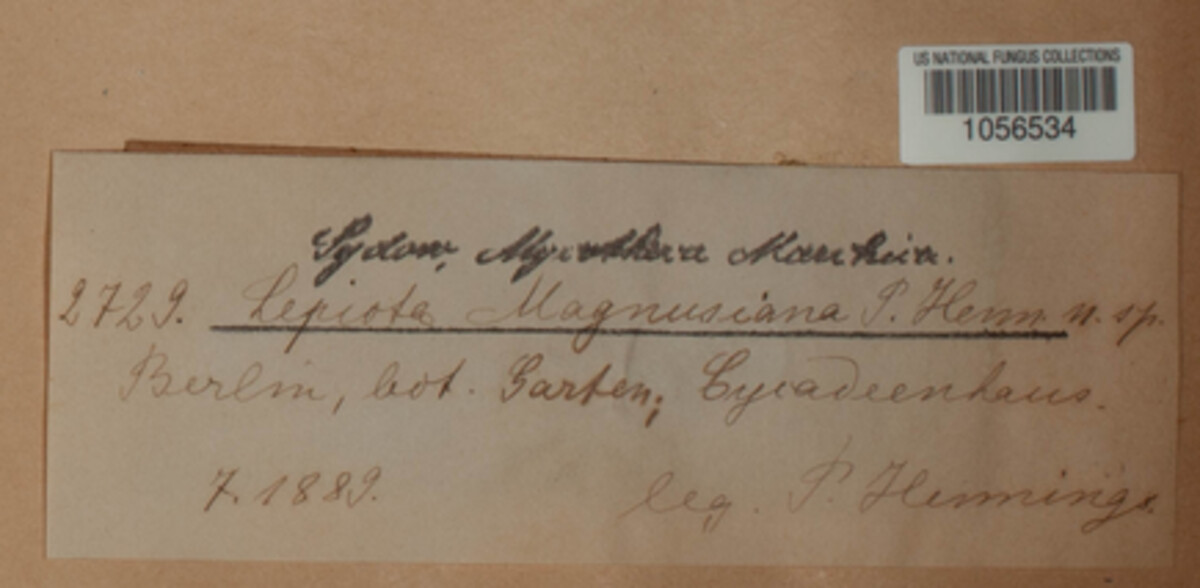 US NATIONAL FUNGUS COLLECTIONS
1056534
Sydow, Mycotheca Marchica.
2729. Lepiota Magnusiana P. Henn. n. sp.
Berlin, bot. Garten; Cycadeenhaus.
7. 1889. leg. P. Hennings.